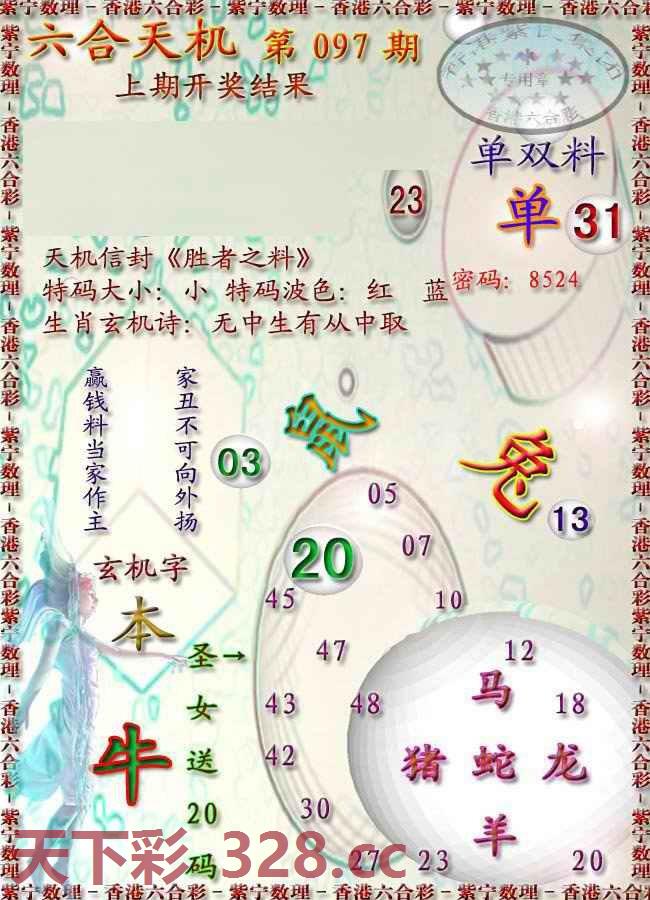 紫宁数理－香港六合彩－紫宁数理－香港六合彩－紫宁数理－香港六合彩－紫宁数理
六合天机 第 097 期
上期开奖结果
专用章
香港六合彩
单双料
23
单 31
天机信封《胜者之料》
特码大小：小 特码波色：红 蓝
密码：8524
生肖玄机诗：无中生有从中取
赢钱料当家作主
家丑不可向外扬
03
鼠
兔
13
05
07
20
45
10
玄机字
本
47
12
圣→
女
送
20
码
牛
43
48
马
18
42
猪 蛇 龙
30
羊
27
23
20
天下彩.328.cc
紫宁数理－香港六合彩－紫宁数理－香港六合彩－紫宁数理－香港六合彩－紫宁数理